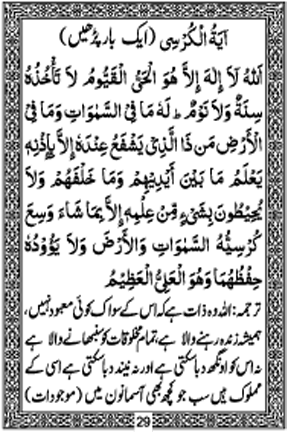 آيَةُ الْكُرْسِي (ایک بار پڑھیں)
اَللهُ لَا اِلٰهَ اِلَّا هُوَ الْحَىُّ الْقَيُّوْمُ لَا تَأْخُذُهٗ
سِنَةٌ وَّلَا نَوْمٌ ط لَهٗ مَا فِى السَّمٰوَاتِ وَمَا فِى
الْاَرْضِ مَنْ ذَا الَّذِىْ يَشْفَعُ عِنْدَهٗ اِلَّا بِاِذْنِهٖ
يَعْلَمُ مَا بَيْنَ اَيْدِيْهِمْ وَمَا خَلْفَهُمْ وَلَا
يُحِيْطُوْنَ بِشَىْءٍ مِّنْ عِلْمِهٖ اِلَّا بِمَا شَاءَ وَسِعَ
كُرْسِيُّهُ السَّمٰوَاتِ وَالْاَرْضَ وَلَا يَؤُدُهٗ
حِفْظُهُمَا وَهُوَ الْعَلِىُّ الْعَظِيْمُ
ترجمہ: اللہ وہ ذات ہے کہ اس کے سوا کوئی معبود نہیں،
ہمیشہ زندہ رہنے والا ہے، تمام مخلوقات کو سنبھالنے والا ہے
نہ اس کو اونگھ دبا سکتی ہے اور نہ نیند دبا سکتی ہے اسی کے
مملوک ہیں سب جو کچھ بھی آسمانوں میں (موجودات)
29